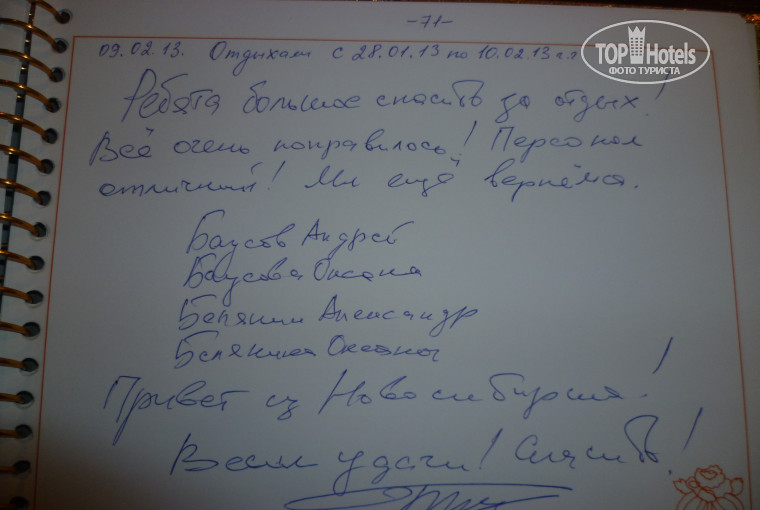 -71-
09.02.13. Отдыхали с 28.01.13 по 10.02.13 г.г
TOP Hotels
ФОТО ТУРИСТА
Ребята большое спасибо за отдых!
Всё очень понравилось! Персонал
отличный! Мы ещё вернёмся.
Баусов Андрей
Баусова Оксана
Белянин Александр
Белянина Оксана
Привет из Новосибирска!
Всем удачи! Спасибо!